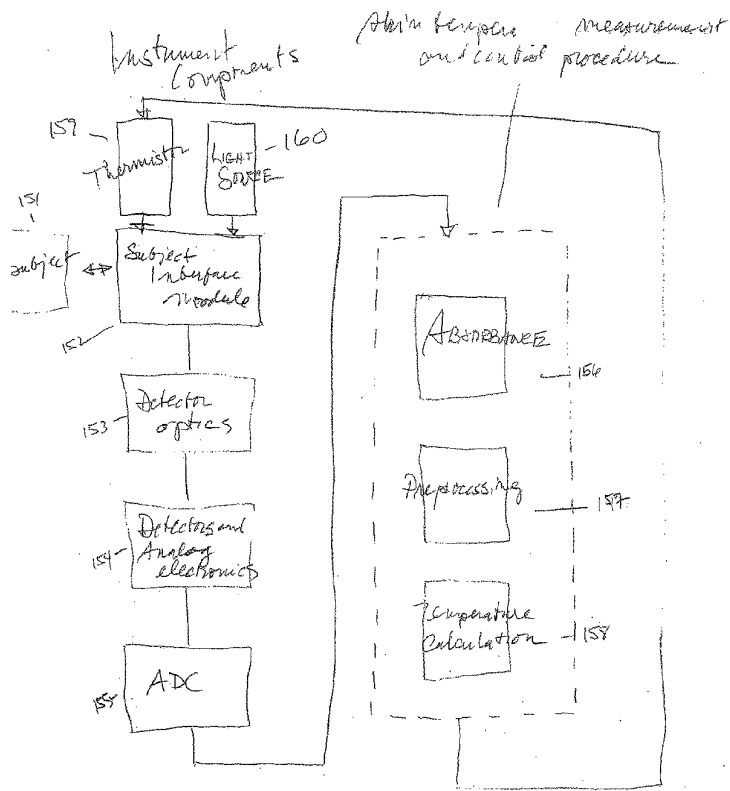 Instrument
Components
Skin tempera measurement
and control procedure
159
Thermistor
LIGHT
SOURCE
160
151
subject
Subject
Interface
module
152
Detector
optics
153
Detectors and
Analog
electronics
154
ADC
155
ABSORBANCE
156
Preprocessing
157
Temperature
Calculation
158